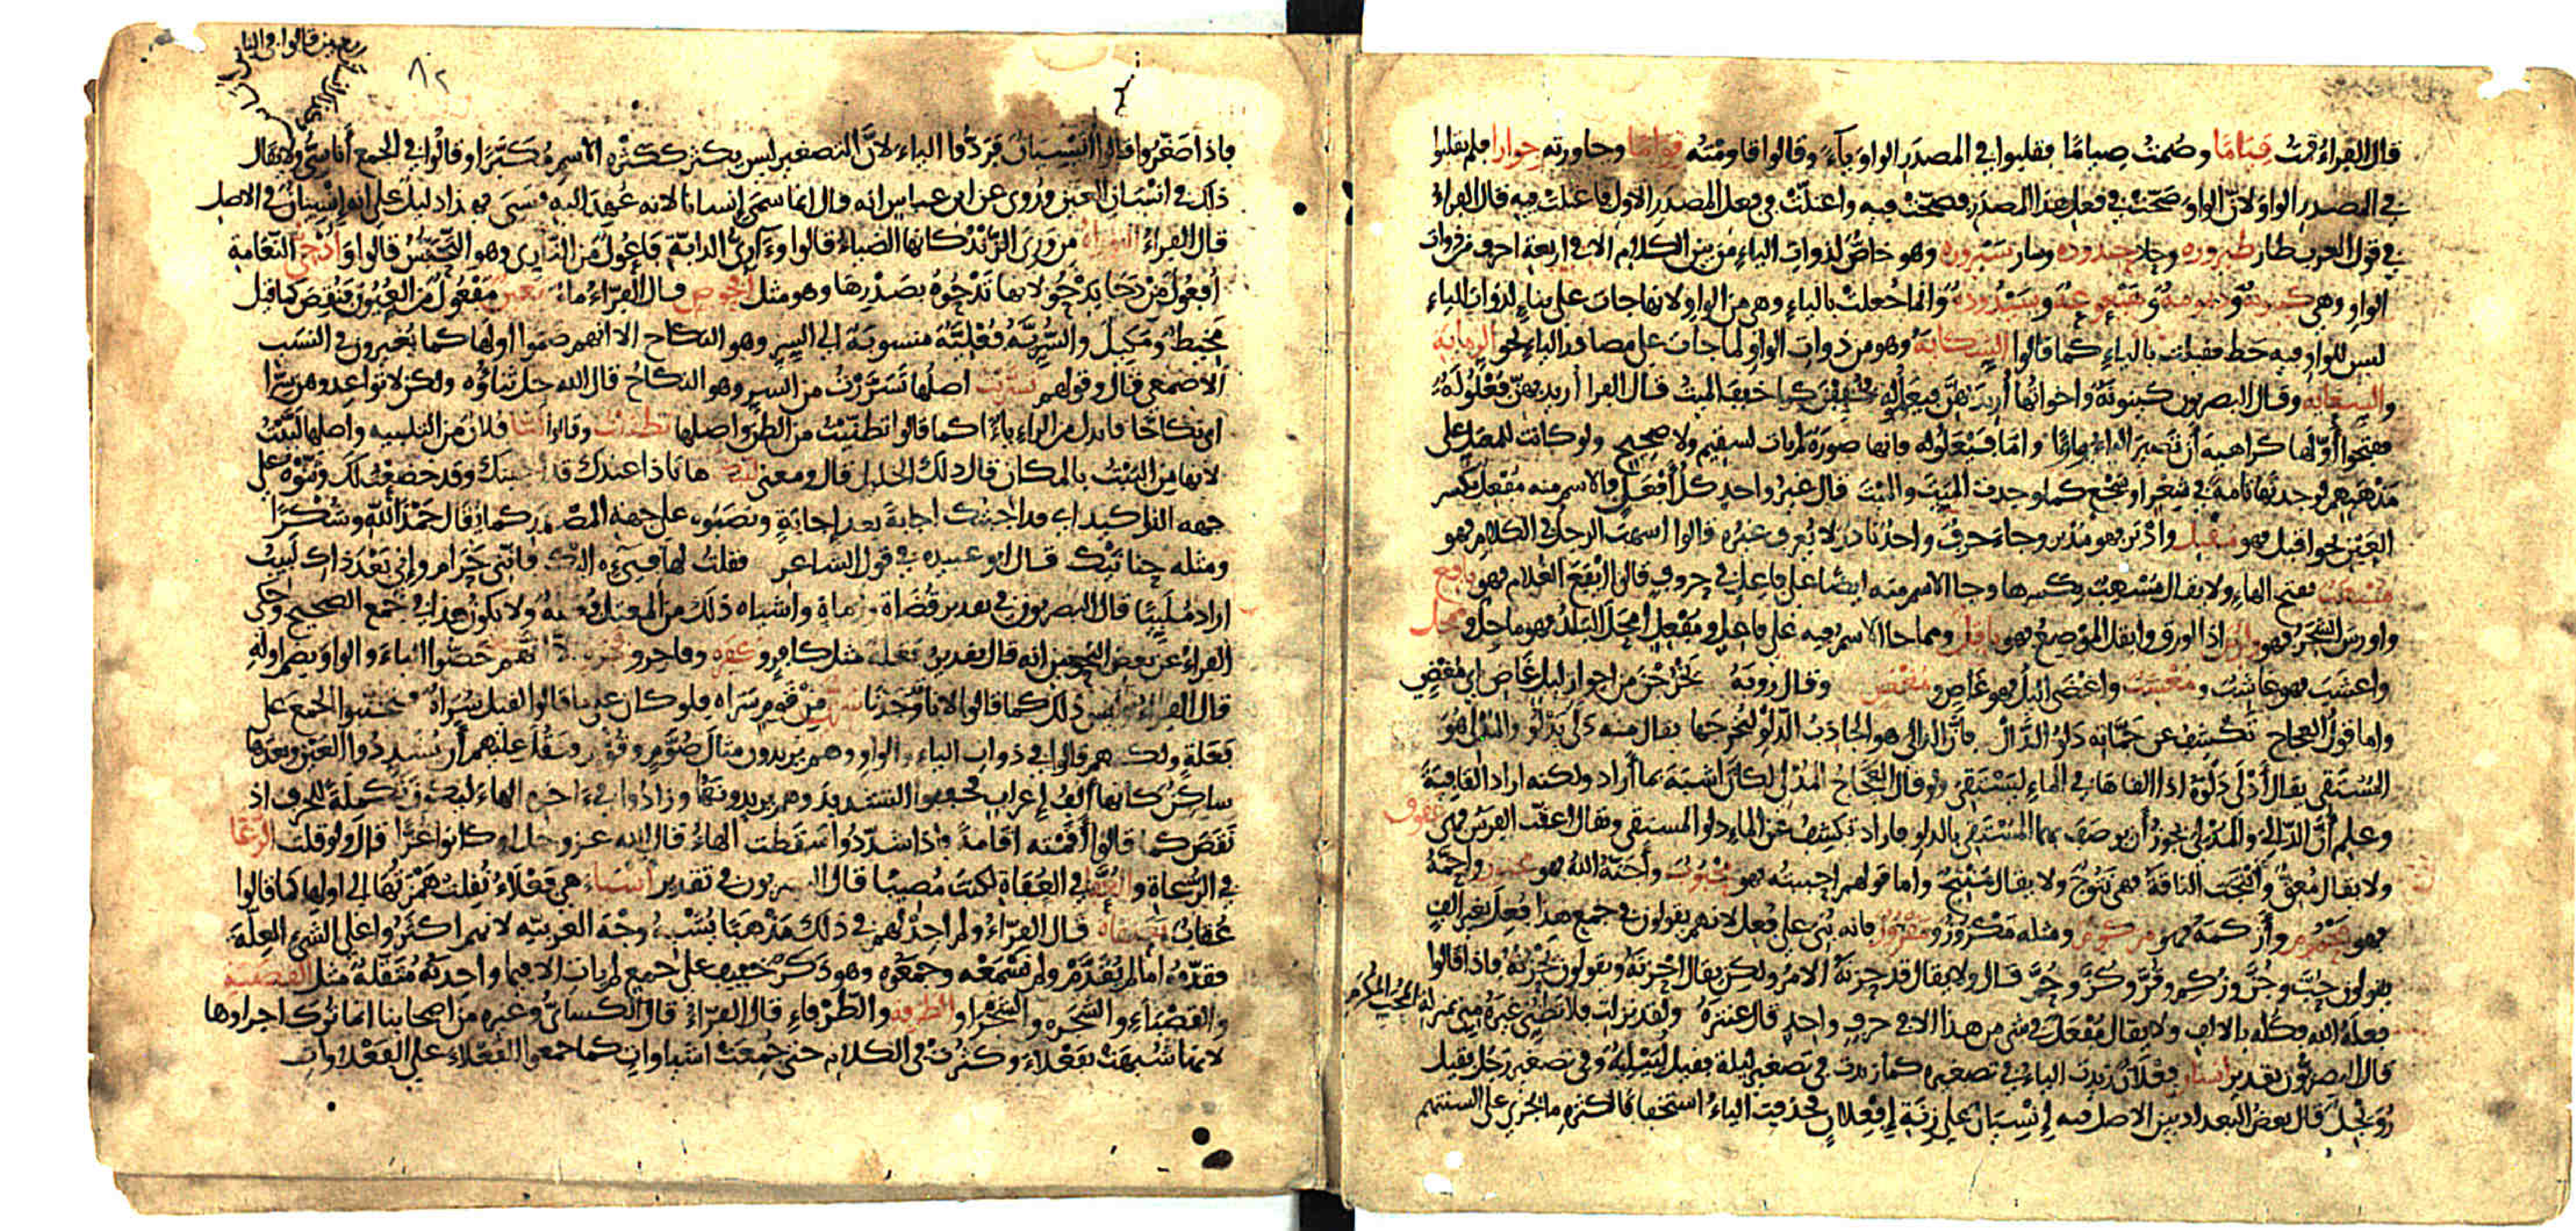 قال الفراء قمت قياما وصمت صياما فقلبوا في المصدر الواو ياء وقالوا قاومته قواما وجاورته جوارا فلم يقلبوا
في المصدر الواو لان الواو صحت في فعل هذا المصدر فصحت فيه واعتلت في فعل المصدر الاول فاعتلت فيه قال الفراء
في قول العرب طار طيروره وحاد حيدوده وسار سيروره وهو خاص لذوات الياء من بين الكلام الا في اربعة احرف من ذوات
الواو وهي كينونة وديمومة وهيعوعة وسيدودة وانما جعلت بالياء وهي من الواو لانها جات على بناء لذوات الياء
ليس للواو فيه حظ فقيلت بالياء كما قالوا الشكاية وهو من ذوات الواو لما جات على مصادر الياء نحو الرماية
والسعاية وقال البصريون كينونة واخواتها اريد بهن فيعلولة فخففن كما خفف الميت قال الفراء اريد بهن فعلولة
ففتحوا اولها كراهية ان تصير الياء واوا واما فيعلولة فانها صورة لم يات لسقيم ولا صحيح ولو كانت للمصدر على
مذهبهم لوجدتها تامة في شعر او سجع كما وجدت الميت والميت قال غيره واحد كل افعل فالاسم منه مفعل بكسر
العين نحو اقبل فهو مقبل وادبر فهو مدبر وجاء حرف واحد نادر لا يعرف غيره قالوا اسهب الرجل في الكلام فهو
مسهب بفتح الهاء ولا يقال مسهب بكسرها وجا الاسم منه ايضا على فاعل في حروف قالوا ايفع الغلام فهو يافع
واورس الشجر فهو وارس اذا اورق وابقل الموضع فهو باقل ومما جا الاسم فيه على فاعل ومفعل امحل البلد فهو ماحل وممحل
واعشب فهو عاشب ومعشب واغضى الليل فهو غاض ومغض وقال رؤبة يخرجن من اجواز ليل غاض اي مغض
واما قول العجاج تكشف عن جماته دلو الدال فان الدالي هو الجاذب الدلو لتخرجها يقال منه دلى يدلو والمدلي هو
المستقي يقال ادلى دلوه اذا القاها في الماء ليستقي ولو قال العجاج المدلي لكان اشبه بما اراد ولكنه اراد القافية
وعلم ان الدالي والمدلي يجوز ان يوصف بهما المستقي بالدلو فاراد تكشف عن الماء دلو المستقي ويقال اعقت الفرس فهي عقوق
ولا يقال معق وانتجت الناقة فهي نتوج ولا يقال منتج واما قولهم احببته فهو محبوب واجنه الله فهو مجنون واحمه
فهو محموم وازكمه فهو مزكوم ومثله مكزوز ومقرور فانه بني على فعل لانهم يقولون في جميع هذا فعل بغير الف
يقولون حب وجن وزكم وقر وكز وحم قال ولا يقال قد حزنه الامر ولكن يقال احزنه ويقولون يحزنه فاذا قالوا
فعله الله فكله بالالف ولا يقال مفعل في شي من هذا الا في حرف واحد قال عنترة ولقد نزلت فلا تظني غيره مني بمنزلة المحب المكرم
قال البصريون تقدير انسان فعلان زيدت الياء في تصغيره كما زيدت في تصغير ليلة فقيل لييلية وفي تصغير رجل فقيل
رويجل قال بعض البغداديين الاصل فيه انسيان على زنة افعلان فحذفت الياء استخفافا لكثرة ما يجري على السنتهم
٨٢
فاذا صغروا قالوا انيسيان فردوا الياء لان التصغير ليس يكثر ككثرة الاسم مكبرا وقالوا في الجمع اناسي ولا يقال
ذلك في انسان العين وروي عن ابن عباس انه قال انما سمي انسانا لانه عهد اليه فنسي فهذا دليل على انه انسيان في الاصل
قال الفراء التوراة من وري الزند كانها الضياء قالوا وءاري الدابة فاعول من التاري وهو التحبس قالوا وادحي النعامة
افعول من دحا يدحو لانها تدحوه بصدرها وهو مثل افحوص قال الفراء ماء معين مفعول من العيون فنقص كما قيل
مخيط ومكيل والسرية فعلية منسوبة الى السر وهو النكاح الا انهم ضموا اولها كما يغيرون في النسب
الاصمعي قال وقولهم تسريت اصلها تسررت من السر وهو النكاح قال الله جل ثناؤه ولكن لا تواعدوهن سرا
اي نكاحا فابدل من الراء ياء كما قالوا تظنيت من الظن واصلها تظننت وقالوا لبا فلان من التلبية واصلها لببت
لانها من البيت بالمكان قال ذلك الخليل قال ومعنى لبيك هانا ذا عندك قد اجبتك وقد خضعت لك وثنوه على
جهة التاكيد اي قد اجبتك اجابة بعد اجابة ونصبوه على جهة المصدر كما يقال حمدا لله وشكرا
ومثله حنانيك قال ابو عبيدة في قول الشاعر فقلت لها فيئي اليك فانني حرام واني بعد ذاك لبيب
اراد ملبيا قال البصريون في تقدير قضاة ورماة واشباه ذلك من المعتل فعلة ولا يكون هذا في جمع الصحيح وحكى
الفراء عن بعض النحويين انه قال تقديره فعلة مثل كافر وكفره وفاجر وفجره الا انهم خصوا الياء والواو بضم اوله
قال الفراء وليس ذلك كما قالوا لانا وجدنا سريا من قوم سراه فلو كان على ما قالوا لقيل سراة فجنبوا الجمع على
فعلة ولكنهم قالوا في ذوات الياء والواو وهم يريدون مثال صوم وقوم وثقل عليهم ان يشددوا العين وبعدها
ساكن كانها الف اعراب فخففوا التشديد وهم يريدونها وزادوا في اخره الهاء ليكون تكملة للحرف اذ
نقص كما قالوا اقمته اقامة فاذا شددوا اسقطت الهاء قال الله عز وجل او كانوا غزا قال ولو قلت الرعا
في الرعاة والعفا في العفاة لكنت مصيبا قال البصريون في تقدير اشياء هي فعلاء نقلت همزتها الى اولها كما قالوا
عقاب بعنقاة قال الفراء ولم اجد لهم في ذلك مذهبا يشبه وجه العربية لانهم اكثروا على الشيء العلة
فقدموه اما لم يقدم ولم نسمعه وجمعوه وهو ذكر خفيف على جمع لم يات الا فيما واحدته مثقلة مثل القصبة
والقصباء والشجره والشجراء والطرفة والطرفاء قال الفراء قال الكسائي وغيره من اصحابنا انما ترك اجراوها
لانها شبهت بفعلاء وكثرت في الكلام حتى جمعت اشياوات كما جمعوا الفعلاء على الفعلاوات